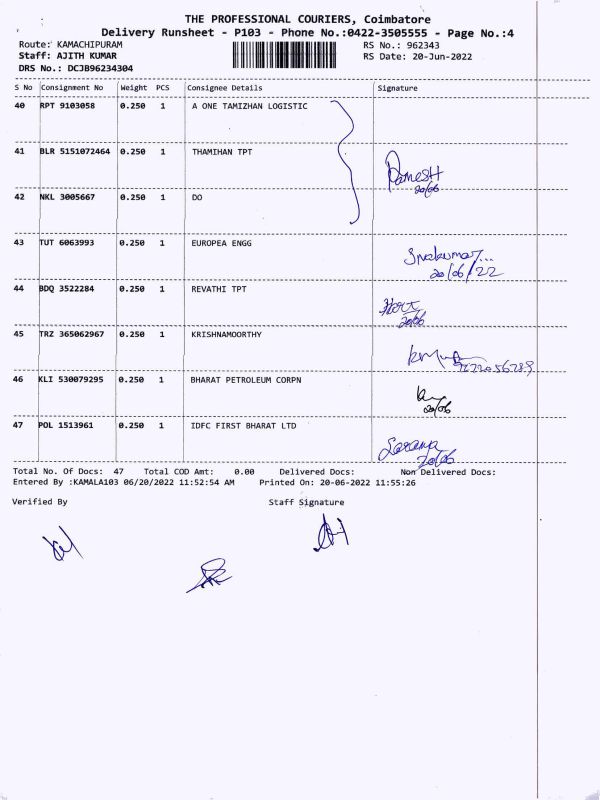 THE PROFESSIONAL COURIERS, Coimbatore
Delivery Runsheet - P103 - Phone No.:0422-3505555 - Page No.:4
Route: KAMACHIPURAM RS No.: 962343
Staff: AJITH KUMAR RS Date: 20-Jun-2022
DRS No.: DCJB96234304
S No Consignment No Weight PCS Consignee Details Signature
40 RPT 9103058 0.250 1 A ONE TAMIZHAN LOGISTIC
41 BLR 5151072464 0.250 1 THAMIHAN TPT
RamesH
20/06
42 NKL 3005667 0.250 1 DO
43 TUT 6063993 0.250 1 EUROPEA ENGG
20/06/22
44 BDQ 3522284 0.250 1 REVATHI TPT
20/06
45 TRZ 365062967 0.250 1 KRISHNAMOORTHY
46 KLI 530079295 0.250 1 BHARAT PETROLEUM CORPN
20/06
47 POL 1513961 0.250 1 IDFC FIRST BHARAT LTD
20/06
Total No. Of Docs: 47 Total COD Amt: 0.00 Delivered Docs: Non Delivered Docs:
Entered By :KAMALA103 06/20/2022 11:52:54 AM Printed On: 20-06-2022 11:55:26
Verified By Staff Signature